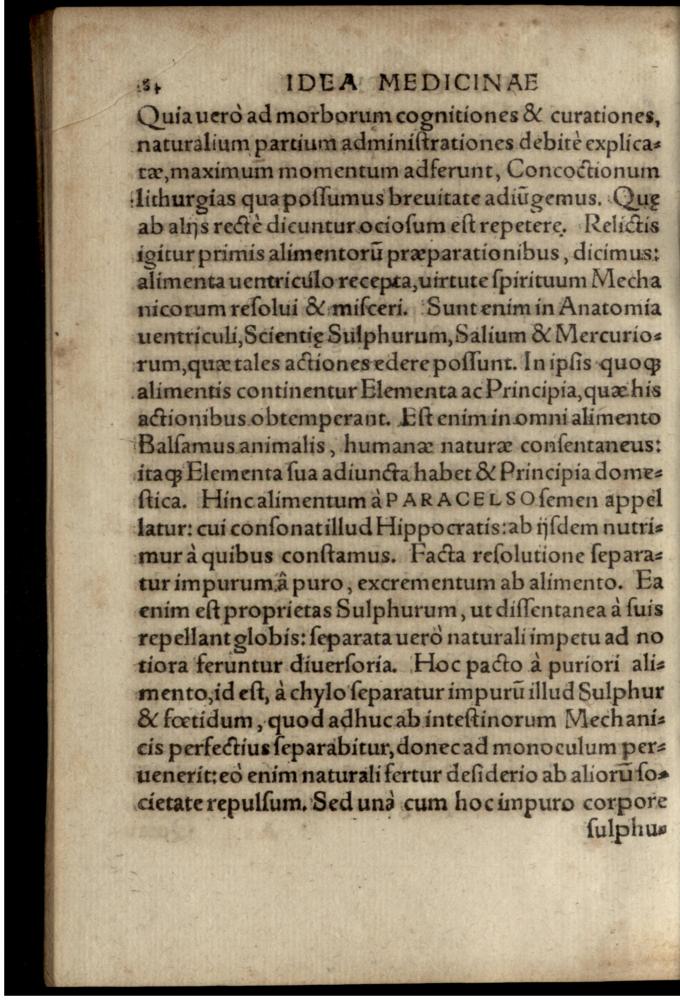 84 IDEA MEDICINAE
Quia uerò ad morborum cognitiones & curationes,
naturalium partium administrationes debitè explica-
tæ, maximum momentum adferunt, Concoctionum
lithurgias qua possumus breuitate adiūgemus. Quę
ab alijs rectè dicuntur ociosum est repetere. Relictis
igitur primis alimentorū præparationibus, dicimus:
alimenta uentriculo recepta, uirtute spirituum Mecha
nicorum resolui & misceri. Sunt enim in Anatomia
uentriculi, Scientię Sulphurum, Salium & Mercurio-
rum, quæ tales actiones edere possunt. In ipsis quoqꝫ
alimentis continentur Elementa ac Principia, quæ his
actionibus obtemperant. Est enim in omni alimento
Balsamus animalis, humanæ naturæ consentaneus:
itaqꝫ Elementa sua adiuncta habet & Principia dome-
stica. Hinc alimentum à PARACELSO semen appel
latur: cui consonat illud Hippocratis: ab ijsdem nutri-
mur à quibus constamus. Facta resolutione separa-
tur impurum à puro, excrementum ab alimento. Ea
enim est proprietas Sulphurum, ut dissentanea à suis
repellant globis: separata uerò naturali impetu ad no
tiora feruntur diuersoria. Hoc pacto à puriori ali-
mento, id est, à chylo separatur impurū illud Sulphur
& fœtidum, quod adhuc ab intestinorum Mechani-
cis perfectius separabitur, donec ad monoculum per-
uenerit: eò enim naturali fertur desiderio ab aliorū so-
cietate repulsum. Sed unà cum hoc impuro corpore
sulphu-